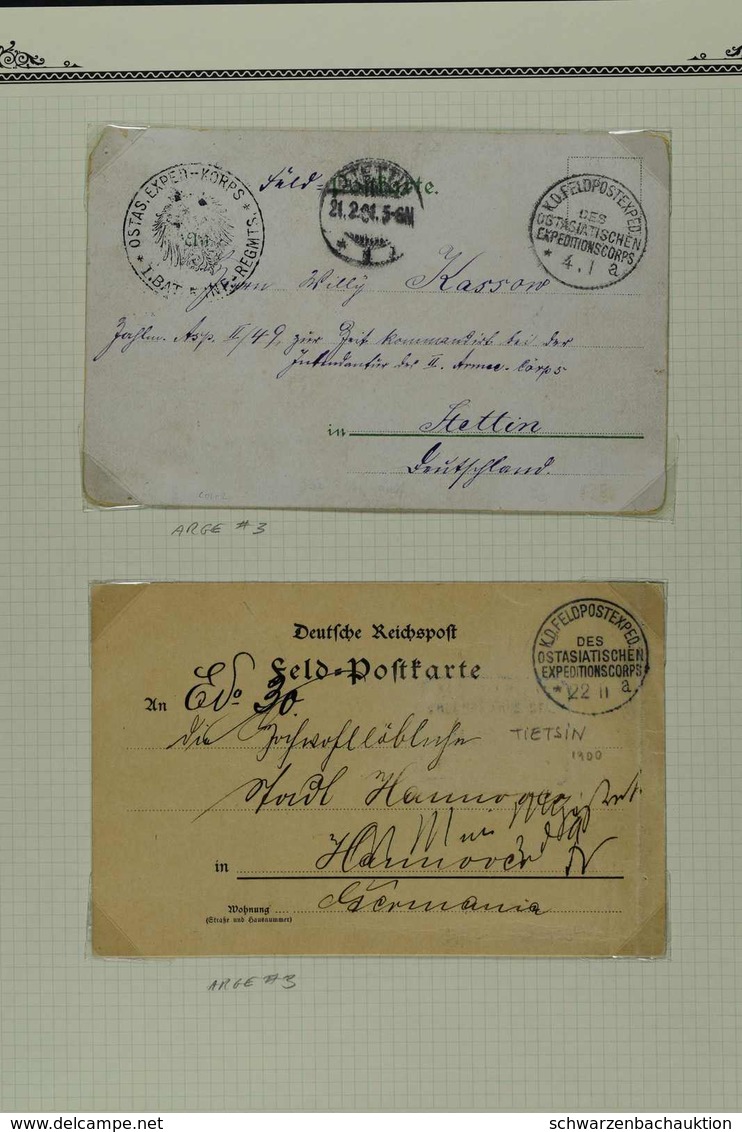 * OSTAS. EXPED.-KORPS *
* I. BAT. INF.-REGMTS.
Feld-Postkarte.
STETTIN
21.2.01. 5-6N
* 1
K.D.FELDPOSTEXPED.
DES
OSTASIATISCHEN
EXPEDITIONSCORPS
* 4.1 a
Herrn Willy Kassow
Zahlm. Asp. II/49, zur Zeit kommandirt bei der
Intendantur des II. Armee-Corps
in Stettin
Deutschland.
ARGE #3
Deutsche Reichspost
Feld-Postkarte
K.D.FELDPOSTEXPED.
DES
OSTASIATISCHEN
EXPEDITIONSCORPS
* 22 11 a
30.
An
die Hochwohllöbliche
TIETSIN
1900
Stadt Hannover
in Hannover
Germania
Wohnung
(Straße und Hausnummer)
ARGE #3
delcampe.net
schwarzenbachauktion